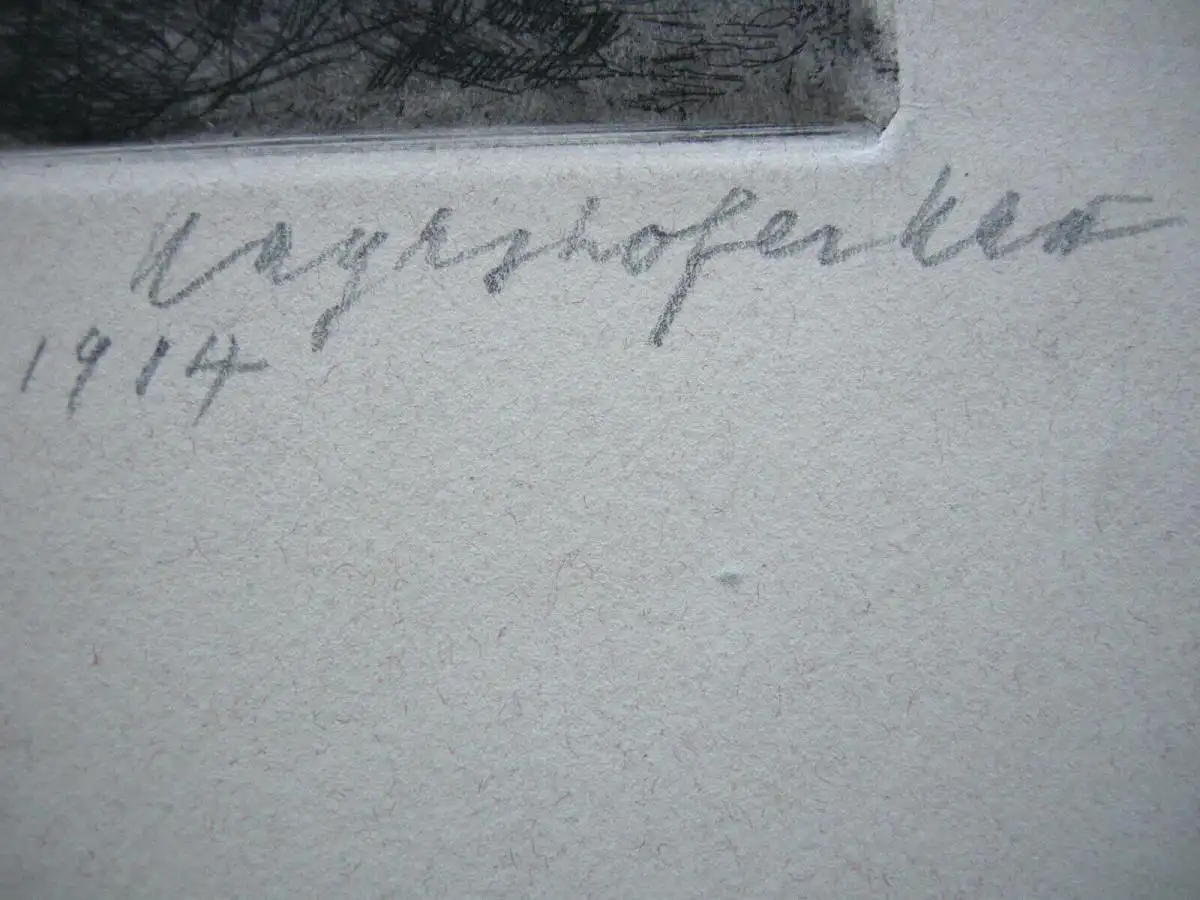 Mayrshofer Max
1914